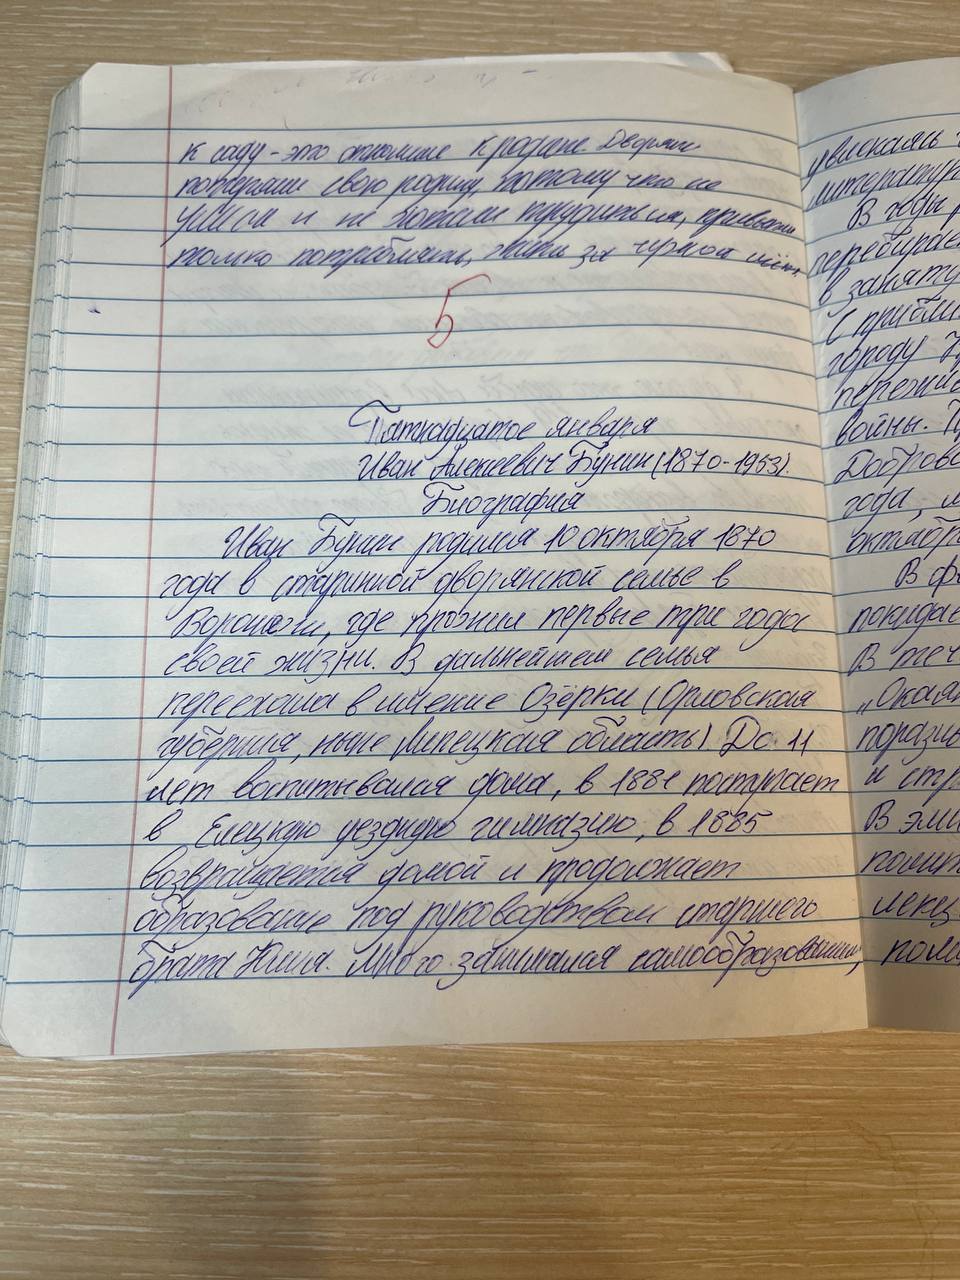 к саду - это отношение к родине. Дворяне
потеряли свою родину, потому что не
умели и не хотели трудиться, привыкли
только потреблять, жить за чужой счёт.
5
Пятнадцатое января
Иван Алексеевич Бунин (1870-1953).
Биография
Иван Бунин родился 10 октября 1870
года в старинной дворянской семье в
Воронеже, где прожил первые три года
своей жизни. В дальнейшем семья
переехала в имение Озёрки (Орловская
губерния, ныне Липецкая область). До 11
лет воспитывался дома, в 1881 поступает
в Елецкую уездную гимназию, в 1885
возвращается домой и продолжает
образование под руководством старшего
брата Юлия. Много занимался самообразованием,
увлекаясь
литератур
В годы
перебирае
в занятую
С прибли
городу
пережив
войны.
Доброво
года,
октябр
В ф
покидае
В теч
„Окаян
порази
и стр
В эми
полит
лекц
пома